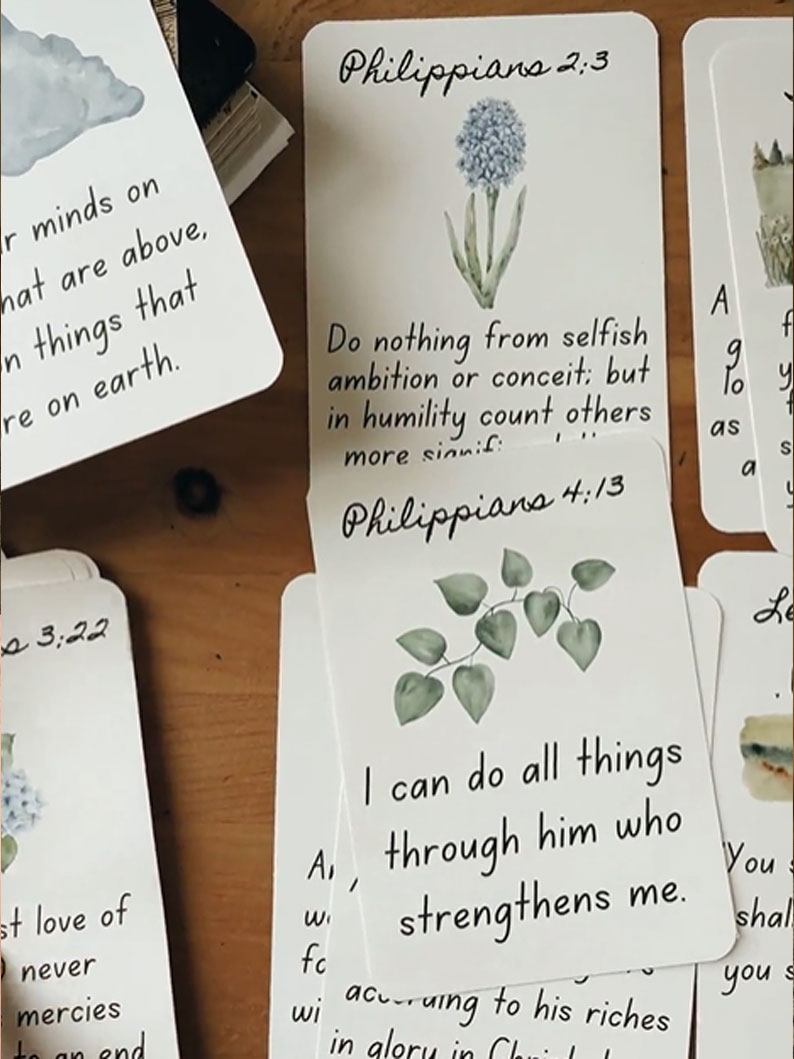 r minds on
hat are above,
n things that
re on earth.
Philippians 2:3
Do nothing from selfish
ambition or conceit; but
in humility count others
more
A
g
lo
as
a
f
y
s
y
Philippians 4:13
I can do all things
through him who
strengthens me.
s 3:22
st love of
never
mercies
to an end
A
w
fo
wi
to his riches
in glory in
Le
You
shal
you s